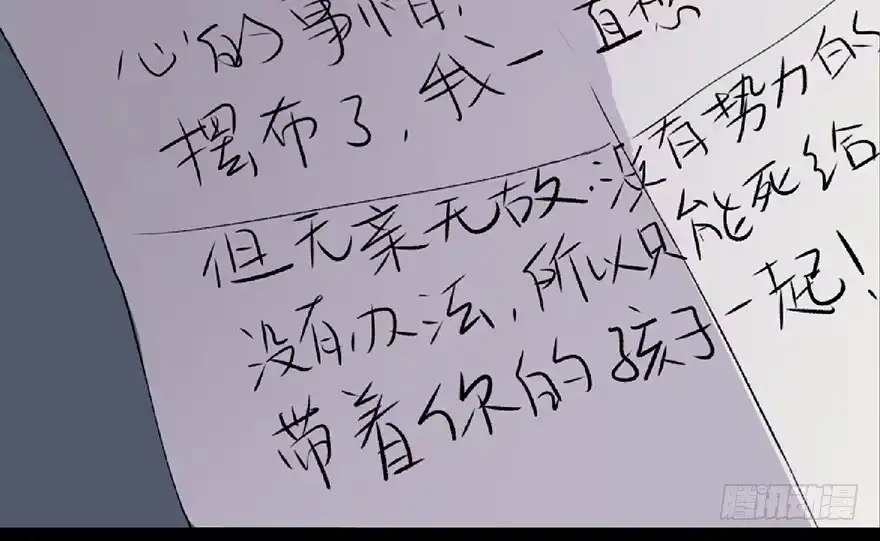 心的事情！
摆布了，我一直想
但无亲无故．没有势力的
没有办法，所以只能死给
带着你的孩子一起！
腾讯动漫